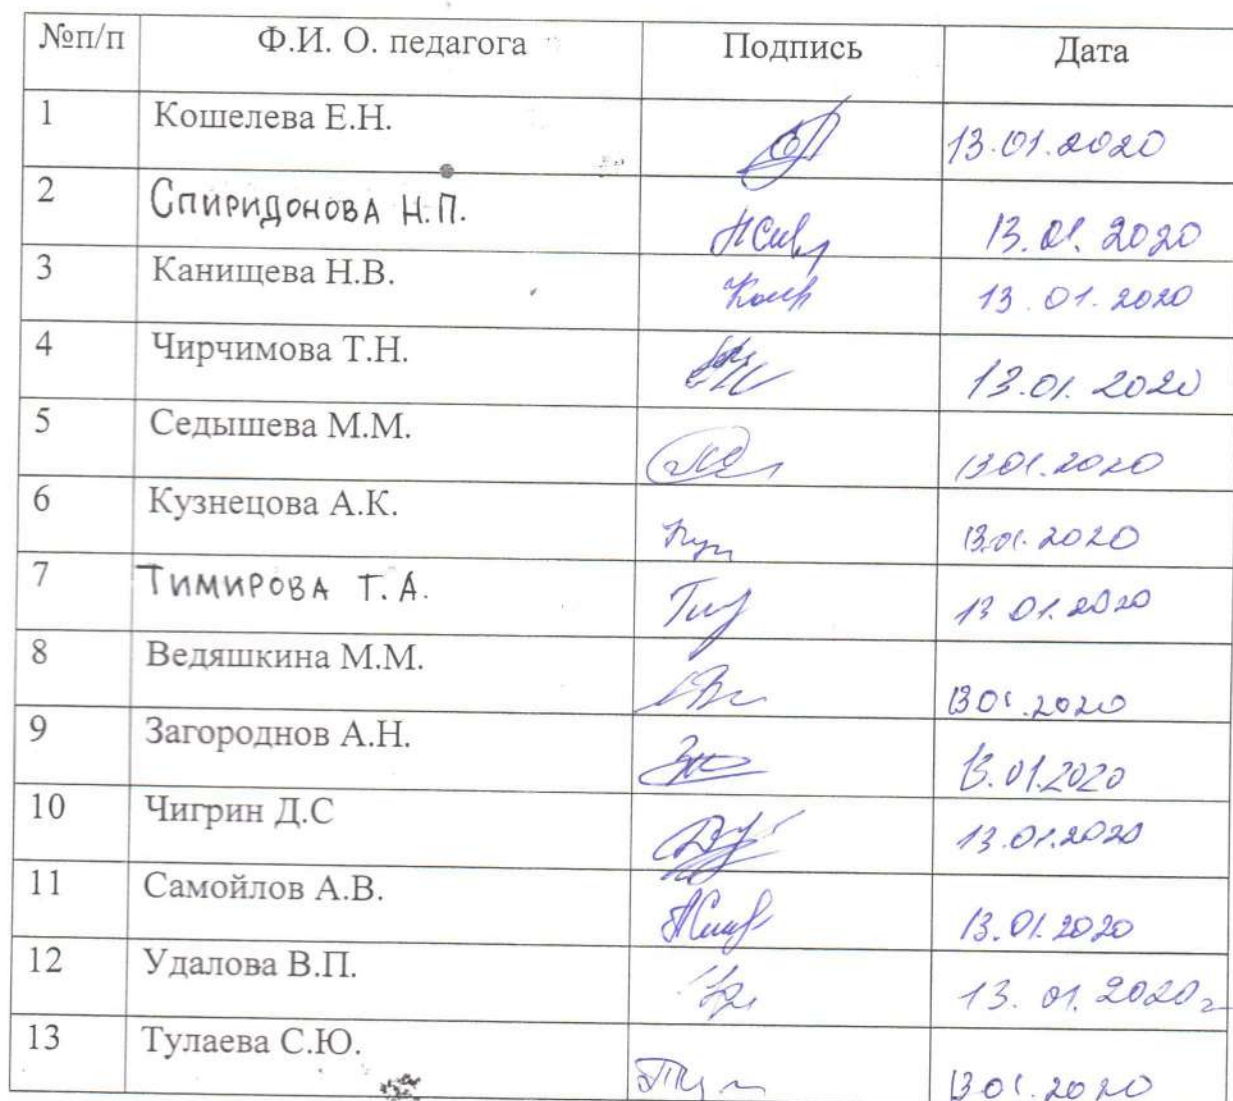 №п/п Ф.И. О. педагога Подпись Дата
1 Кошелева Е.Н. 13.01.2020
2 Спиридонова Н.П. 13.01.2020
3 Канищева Н.В. 13.01.2020
4 Чирчимова Т.Н. 13.01.2020
5 Седышева М.М. 13.01.2020
6 Кузнецова А.К. 13.01.2020
7 Тимирова Т.А. 13 01.2020
8 Ведяшкина М.М. 13 01.2020
9 Загороднов А.Н. 13.01.2020
10 Чигрин Д.С 13.01.2020
11 Самойлов А.В. 13.01.2020
12 Удалова В.П. 13.01.2020г
13 Тулаева С.Ю. 13 01.2020